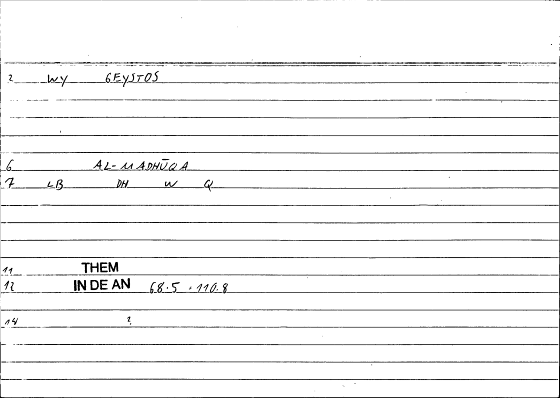 2 WY GEYSTOS
6 AL-MADHŪQA
7 LB DH W Q
11 THEM
12 IN DE AN 68.5 . 110.8
14 ?